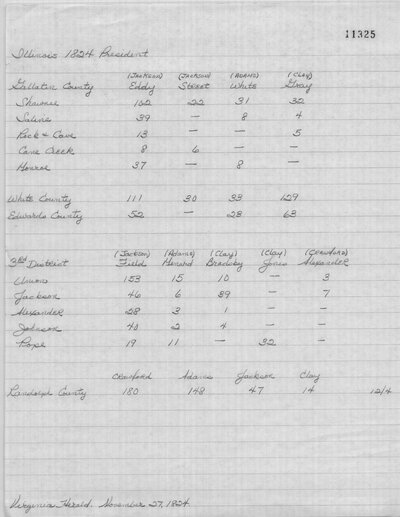 11325
Illinois 1824 President
(Jackson) (Jackson) (Adams) (Clay)
Gallatin County Eddy Street White Gray
Shawnee 102 22 31 32
Saline 39 — 8 4
Rock & Cave 13 — — 5
Cane Creek 8 6 — —
Monroe 37 — 8 —
White County 111 30 33 129
Edwards County 52 — 28 63
(Jackson) (Adams) (Clay) (Clay) (Crawford)
3rd District Field Bradsby Jones Alexander
Union 153 15 10 — 3
Jackson 46 6 89 — 7
Alexander 28 3 1 — —
Johnson 40 2 4 — —
Pope 19 11 — 32 —
Crawford Adams Jackson Clay
Randolph County 180 148 47 14 12/4
Virginia Herald. November 27, 1824.